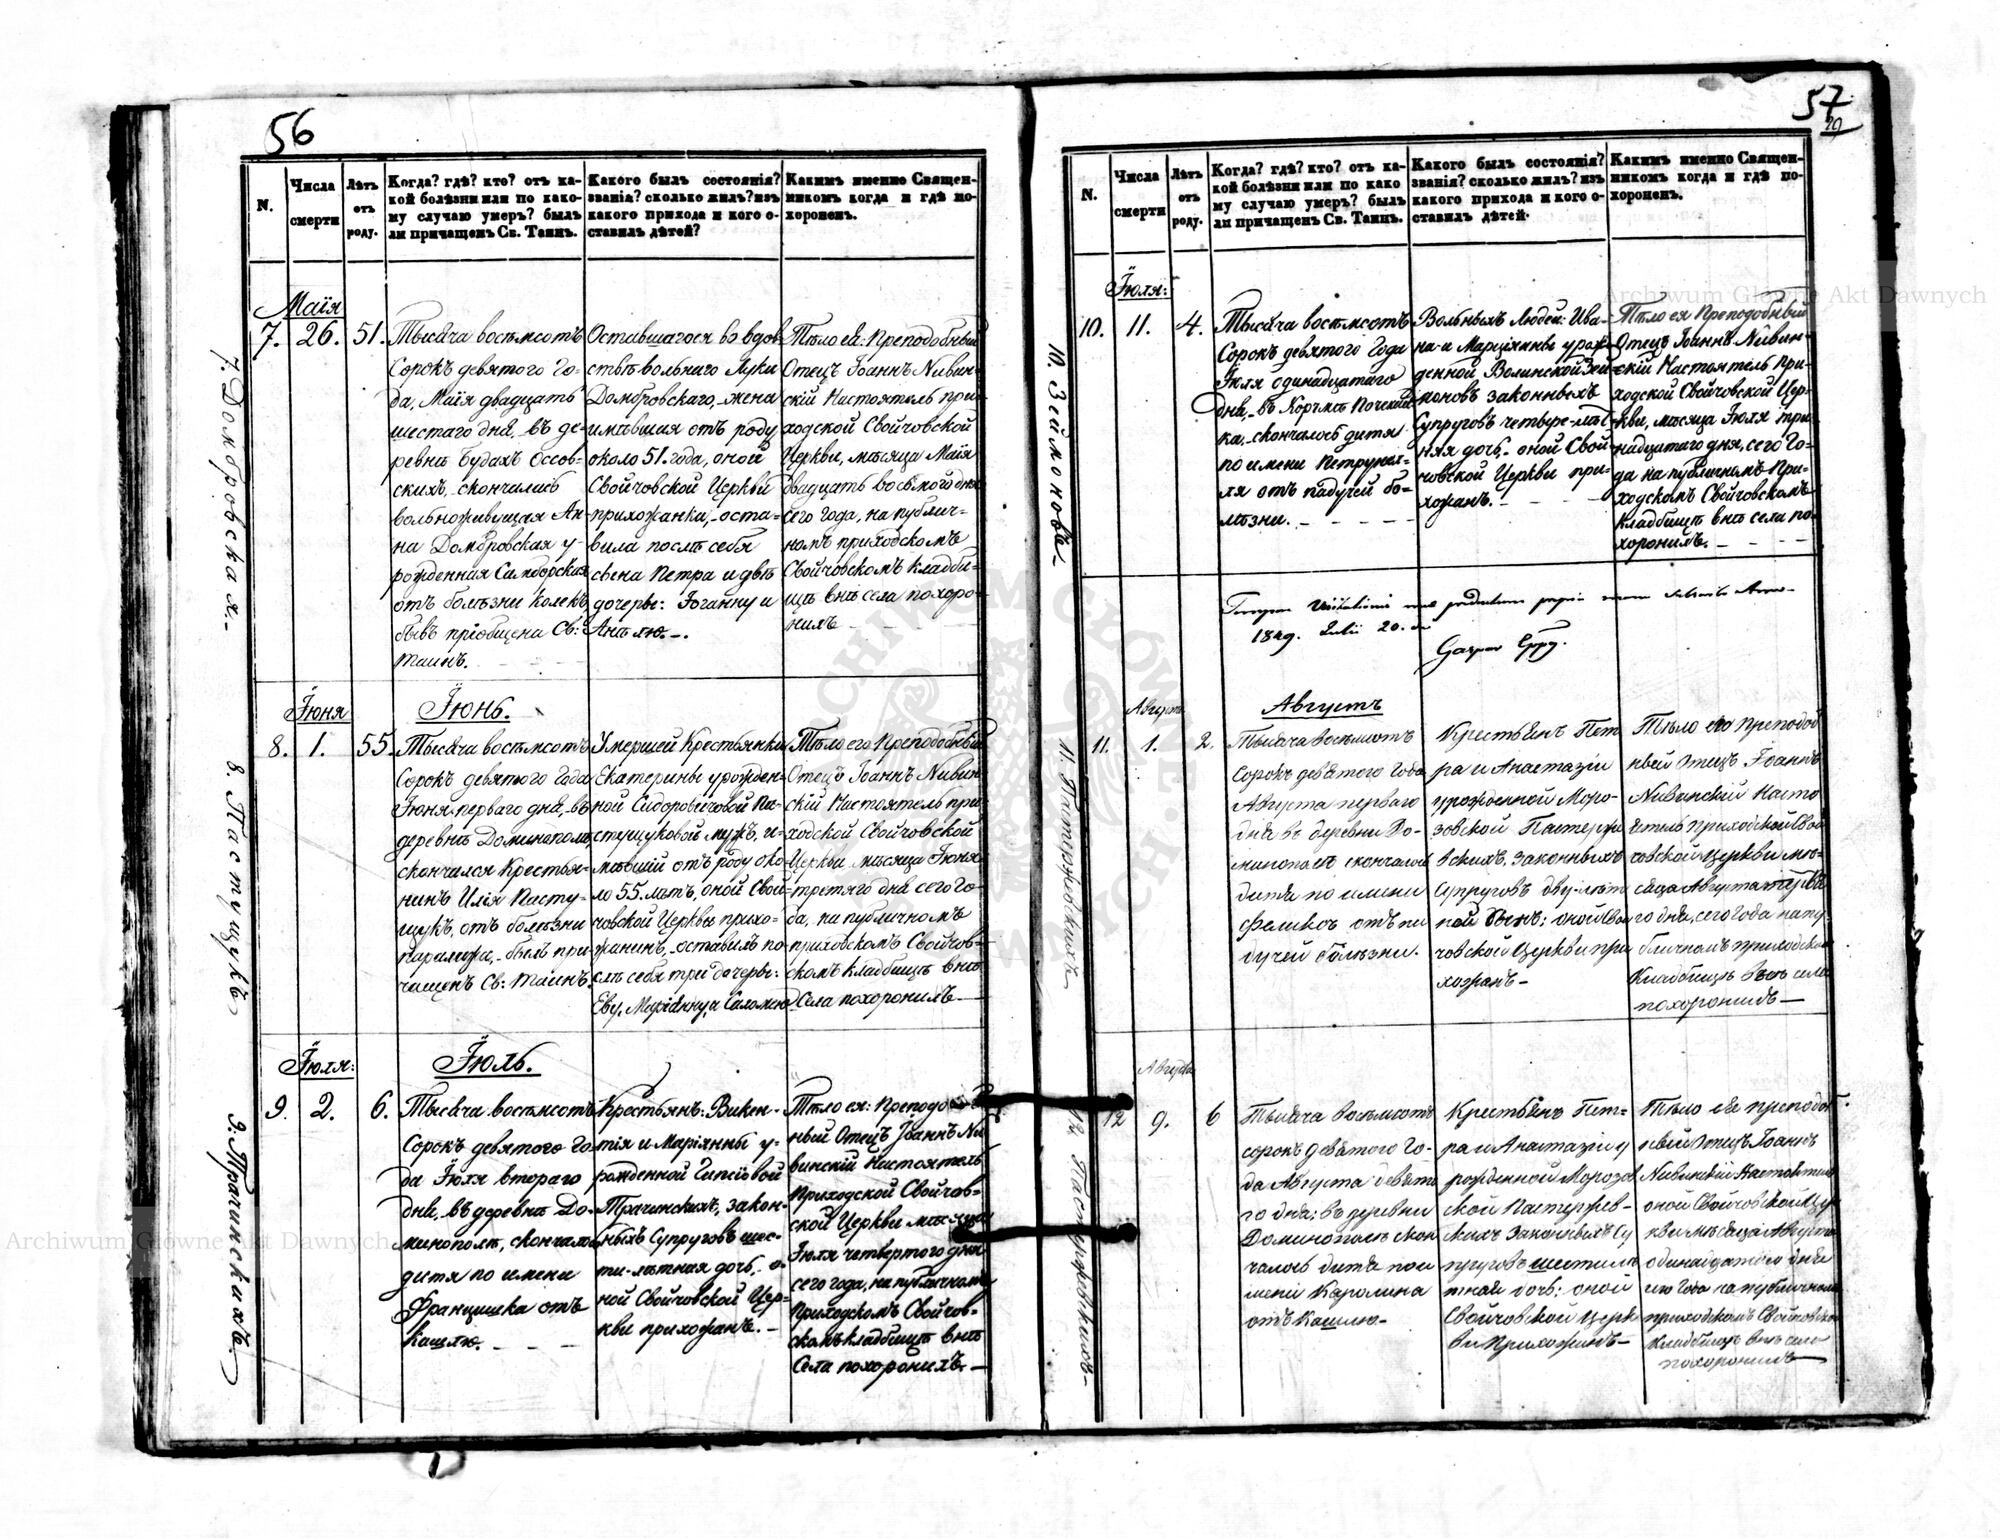 56
N.
Числа смерти
Лѣтъ отъ роду.
Когда? гдѣ? кто? отъ ка-
кой болѣзни или по како-
му случаю умеръ? былъ
ли причащенъ Св. Таинъ.
Какого былъ состоянія?
званія? сколько жилъ? изъ
какого прихода и кого о-
ставилъ дѣтей?
Какимъ именно Священ-
никомъ когда и гдѣ по-
хороненъ.
7. Домбровская.
Маія
7. 26. 51.
Тысяча восѣмсотъ
Сорокъ девятого Го-
да, Маія двадцать
шестаго дня, въ де-
ревнѣ Будахъ Оссов-
скихъ, скончалась
вольноживущая Ан-
на Домбровская у-
рожденная
отъ болѣзни колекъ
бывъ пріобщена Св:
Таинъ.
Оставшагося во вдов-
ствѣ вольнаго Луки
Домбровскаго, жена
имѣвшая отъ роду
около 51. года, оной
Свойчовской Церкви
прихожанки, оста-
вила послѣ себя
сына Петра и двѣ
дочеры: Іоганну и
Анѣлю.
Тѣло ей: Преподобный
Отецъ Іоаннъ Нивин-
скій Настоятель при-
ходской Свойчовской
Церкви, мѣсяца Маія
двадцать восьмого дня
сего года, на публич-
номъ приходскомъ
Свойчовскомъ кладби-
щѣ внѣ села похоро-
нилъ
8. Пастущукъ
Іюня
Іюнь.
8. 1. 55.
Тысяча восѣмсотъ
Сорокъ девятого Года
Іюня перваго дня, въ
деревнѣ Доминополѣ,
скончался Крестья-
нинъ Илія Пасту-
щукъ, отъ болѣзни
паралижа, былъ при-
чащенъ Св: Таинъ.
Умершей Крестьянки
Екатерины урожден-
ной Сидоровичовой Па-
стущуковой мужъ, и-
мѣвшій отъ роду око-
ло 55. лѣтъ, оной Свой-
човской Церквы прихо-
жанинъ, оставилъ по-
слѣ себя три дочеры:
Еву, Маріянну, и Саломею
Тѣло его Преподобный
Отецъ Іоаннъ Нивин-
скій Настоятель при-
ходской Свойчовской
Церкви мѣсяца Іюня
третяго дня сего го-
да, на публичномъ
приходскомъ Свойчов-
скомъ кладбищѣ внѣ
Села похоронилъ
9. Трачинскихъ.
Іюля:
Іюль.
9. 2. 6.
Тысяча восѣмсотъ
Сорокъ девятого Го-
да Іюля второго
дня, въ деревнѣ До-
минополѣ, скончалось
дитя по имени
Францишка отъ
Кашлю.
Крестьянъ: Викен-
тія и Маріянны у-
рожденной Гипсіовой
Трачинскихъ, закон-
ныхъ Супруговъ шес-
ти-лѣтная дочь, о-
ной Свойчовской Цер-
кви прихожанъ.
Тѣло ея: Преподоб-
ный Отецъ Іоаннъ Ни-
винскій Настоятель
Приходской Свойчов-
ской Церкви мѣсяца
Іюля четвертого дня
сего года, на публичномъ
Приходскомъ Свойчов-
скомъ кладбищѣ внѣ
Села похоронилъ.
57
29
N.
Числа смерти
Лѣтъ отъ роду.
Когда? гдѣ? кто? отъ ка-
кой болѣзни или по како
му случаю умеръ? былъ
ли причащенъ Св. Таинъ.
Какого былъ состоянія?
званія? сколько жилъ? изъ
какого прихода и кого о-
ставилъ дѣтей.
Какимъ именно Священ-
никомъ когда и гдѣ по-
хороненъ.
10. Зеймоновъ
Іюля:
10. 11. 4.
Тысяча восѣмсотъ
Сорокъ девятого Года
Іюля одинадцатаго
дня, въ Корчмѣ
скончалось дитя
по имени Петруне-
ля отъ падучей бо-
лѣзни.
Вольныхъ Людей: Ива-
на и Марціянны урож-
денной Волинской Зей-
моновъ законныхъ
Супруговъ четыре-лѣт-
няя дочь, оной Свой-
човской Церкви при-
хожанъ.
Тѣло ея Преподобный
Отецъ Іоаннъ Нивин-
скій Настоятель При-
ходской Свойчовской Цер-
кви, мѣсяца Іюля три-
надцатаго дня, сего Го-
да на публичномъ При-
ходскомъ Свойчовскомъ
Кладбищѣ внѣ села по-
хоронилъ.
Tempore Visitationis
1849. Julii 20.
Gaspar
11. Пастержевскихъ
Августа
Августъ
11. 1. 2.
Тысяча восѣмсотъ
Сорокъ девятого Года
Августа перваго
дня въ деревни До-
минополѣ скончалось
дитя по имени
Феликсъ отъ па
дучей болѣзни.
Крестьянъ Пет
ра и Анастазіи
урожденной Моро-
зовской Пастерже
вскихъ, законныхъ
Супруговъ дву-лѣт
ной сынъ; оной Свой
човской Церкви при
хожанъ
Тѣло его преподоб
ный Отецъ Іоаннъ
Нивинскій Насто
ятель Приходской Свой
човской Церкви мѣ-
сяца Августа
го дня, сего года на пу
бличномъ приходскомъ
Кладбищѣ внѣ села
похоронилъ
12. Пастержевскихъ
Августа
12 9. 6
Тысяча восѣмсотъ
сорокъ девятого Го-
да Августа девята
го дня; въ деревни
Доминополѣ скон
чалось дитя по и
мени Каролина
отъ Кашлю.
Крестьянъ Пет-
ра и Анастазіи у
рожденной Морозов
ской Пастержев-
скихъ Законныхъ Су
пруговъ шестилѣ
тная дочь; оной
Свойчовской Церк
ви Прихожанъ
Тѣло ея преподоб
ный Отецъ Іоаннъ
Нивинскій Настоятель
оной Свойчовской Цер
кви мѣсяца Августа
одинадцатого дня
сего Года на публичномъ
приходскомъ Свойчовскомъ
Кладбищѣ внѣ села
похоронилъ
Archiwum Główne Akt Dawnych
Archiwum Główne Akt Dawnych